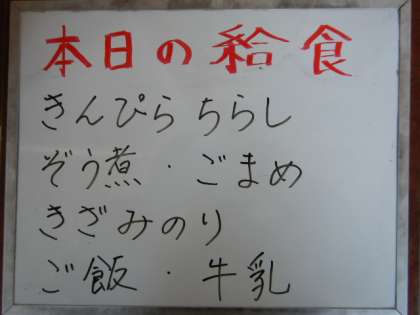 本日の給食
きんぴらちらし
ぞう煮・ごまめ
きざみのり
ご飯・牛乳